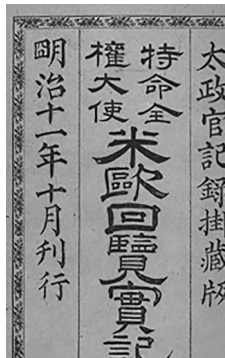 太政官記録掛藏版
特命全
權大使
米歐回覽實記
明治十一年十月刊行